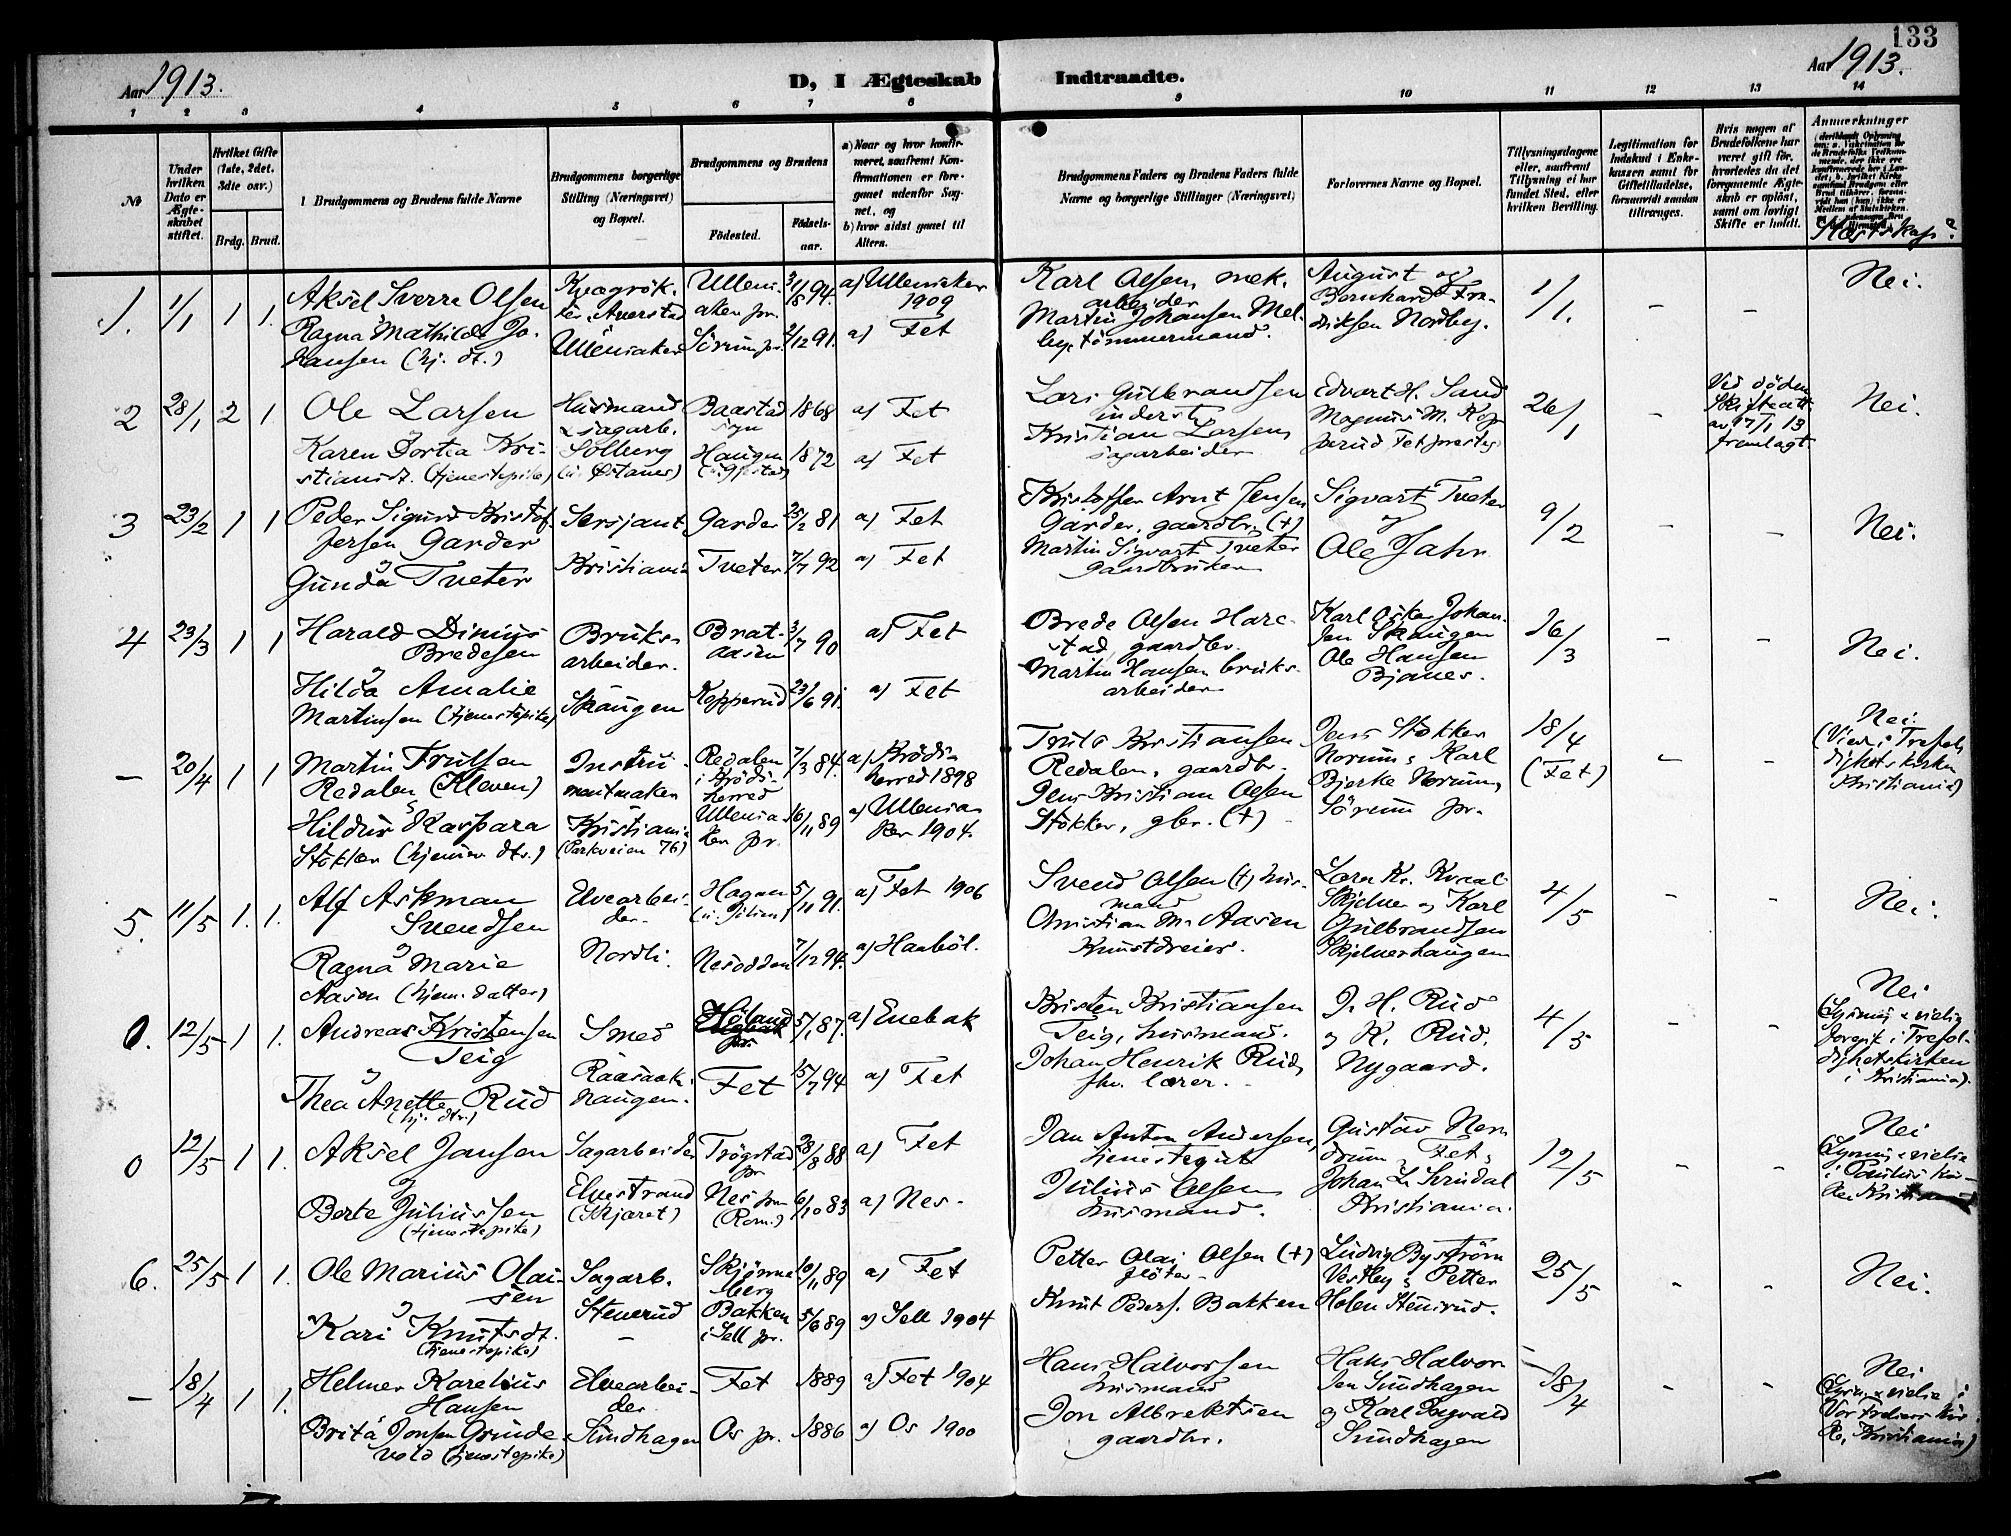 133
Aar 1913.
D, I Ægteskab Indtraadte.
Aar 1913.
1 2 3 4 5 6 7 8 9 10 11 12 13 14
No
Under hvilken Dato er Ægteskabet stiftet.
Hvilket Gifte (1ste, 2det, 3die osv.)
Brdg. Brud.
Brudgommens og Brudens fulde Navne
Brudgommens borgerlige Stilling (Næringsvei) og Bopæl.
Brudgommens og Brudens
Fødested.
Fødselsaar.
a) Naar og hvor konfirmeret, saafremt Konfirmationen er foregaaet udenfor Sognet, og
b) hvor sidst gaaet til Alters.
Brudgommens Faders og Brudens Faders fulde Navne og borgerlige Stillinger (Næringsvei)
Forlovernes Navne og Bopæl.
Tillysningsdagene eller, saafremt Tillysning ei har fundet Sted, efter hvilken Bevilling.
Legitimation for Indskud i Enkekassen samt for Giftetilladelse, forsaavidt saadan tiltrænges.
Hvis nogen af Brudefolkene har været gift før, hvorledes da det foregaaende Ægteskab er opløst, samt om lovligt Skifte er holdt.
Anmerkninger
Slægtskap?
1. 1/1 1 1.
Aksel Sverre Olsen
og
Ragna Mathilde Johansen (hj. dt.)
Ullensaker
Ullensaker pr.
Sørum pr. 2/12 91.
a) Ullensaker 1909
a) Fet
Karl Olsen, mek. arbeider
Martin Johansen Melby, tømmermand.
August og Bernhard Fredriksen Nordby.
1/1.
Nei.
2 28/1 2 1
Ole Larsen
Karen Dortia Kristiansdt. (tjenestepike)
Husmand & sagarb.
Solberg
Baastad sgn 1868
Haugen 1872
a) Fet
a) Fet
Lars Gulbrandsen inderst
Kristian Larsen, sagarbeider
Edvart H. Sand
Magnus M.
26/1
Ved døden
Skifteatt. av 17/1 13 fremlagt.
Nei.
3 23/2 1 1
Peder Sigurd Kristofersen Garder
og
Gunda Tveter
Sersjant
Kristiania
Garder 25/2 81
Tveter 7/7 92
a) Fet
a) Fet
Kristoffer Arnt Jensen Garder, gaardbr. (+)
Martin Sigvart Tveter gaardbruker
Sigvart Tveter
og
Ole Jahr
9/2
Nei.
4 23/3 1 1
Harald Dinius Bredesen
og
Hilda Amalie Martinsen (tjenestepike)
Bruksarbeider.
Skaugen
Brataasen 3/7 90
Kopperud 23/6 91.
a) Fet
a) Fet
Brede Olsen Harestad, gaardbr.
Martin Hansen bruksarbeider
Karl Oskar Johansen Skaugen
Ole Hansen Bjanes.
16/3
Nei.
— 20/4 1 1
Martin Trulsen Redalen (Kleven)
og
Hildur Kaspara Stokker (hjemmev. dtr.)
Instrumentmaker
Kristiania (Parkveien 76)
Redalen i Brødsherred 7/3 84.
Ullensaker pr. 16/11 89
a) herred 1898
a) Ullensaker 1904.
Truls Kristiansen Redalen, gaardbr.
Jens Kristian Olsen Stokker, gbr. (+)
Jens Stokker Norum, Karl Bjerke Norum, Sørum pr.
18/4 (Fet)
Nei.
(Viet i Trefoldighetskirken Kristiania)
5. 11/5 1. 1.
Alf Askman Svendsen
og
Ragna Marie Aasen (hjem. datter)
Elvearbeider.
Nordli.
Hagan 5/11 91.
Nesodden 7/12 94.
a) Fet 1906
a) Haabøl.
Svend Olsen (+) husmand
Christian M. Aasen Kunstdreier.
Lars Kr. Kvaal Skjelver og Karl Gulbrandsen Skjelverhaugen
4/5
Nei.
0. 12/5 1 1.
Andreas Kristensen Teig
og
Thea Anette Rud (hj. dtr.)
Smed
Raasaakhaugen.
Høland pr. 5/1 87.
Fet 15/7 94
a) Enebak
a) Fet
Kristen Kristiansen Teig, husmand.
Johan Henrik Rud, fhv. lærer.
J. H. Rud og K. Rud. Nygaard.
4/5
Nei
(Lysning & vielse foregik i Trefoldighetskirken i Kristiania).
0 12/5 1 1.
Aksel Jansen
og
Berte Juliussen (tjenestepike)
Sagarbeider
Elvestrand (Skjæret)
Trøgstad pr 28/8 88
Nes pr. (Rom.) 6/10 83
a) Fet
a) Nes.
Jan Anton Andersen, tjenestegut
Julius Olsen husmand.
Gustav Nerdrum, Fet,
Johan L. Svindal Kristiania.
12/5
Nei
(Lysning & vielse i Paulus kirken Kristiania)
6. 25/5 1 1.
Ole Marius Olaisen
og
Kari Knutsdt. (tjenestepike)
Sagarb.
Stenerud
Skjønneberg 10/11 89
Bakken i Sell pr. 5/6 89
a) Fet
a) Sell 1904
Petter Olai Olsen (+) fløter
Knut Peders. Bakken
Ludvig Bystrøm Vestby, Petter Holen Stenerud.
25/5
Nei.
— 18/4 1 1.
Helmer Karelius Hansen
Brita Jonsen Grindevold (tjenestepike)
Elvearbeider.
Sundhagen
Fet 1889
Os pr. 1886
a) Fet 1904
a) Os 1900
Hans Halvorsen husmand
Jon Albrektsen gaardbr.
Hans Halvorsen Sundhagen og Karl Ingvald Sundhagen
18/4
Nei
(Lysn. & vielse i Vor Frelsers kirke, Kristiania)